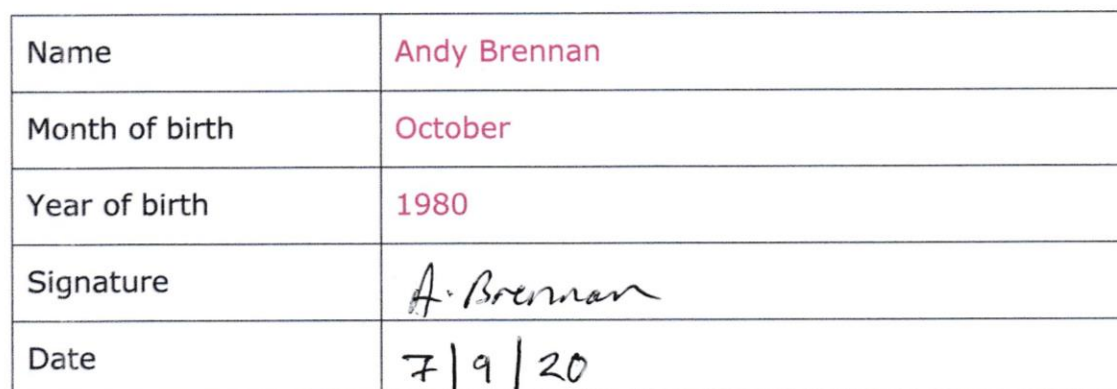 Name Andy Brennan
Month of birth October
Year of birth 1980
Signature A. Brennan
Date 7|9|20